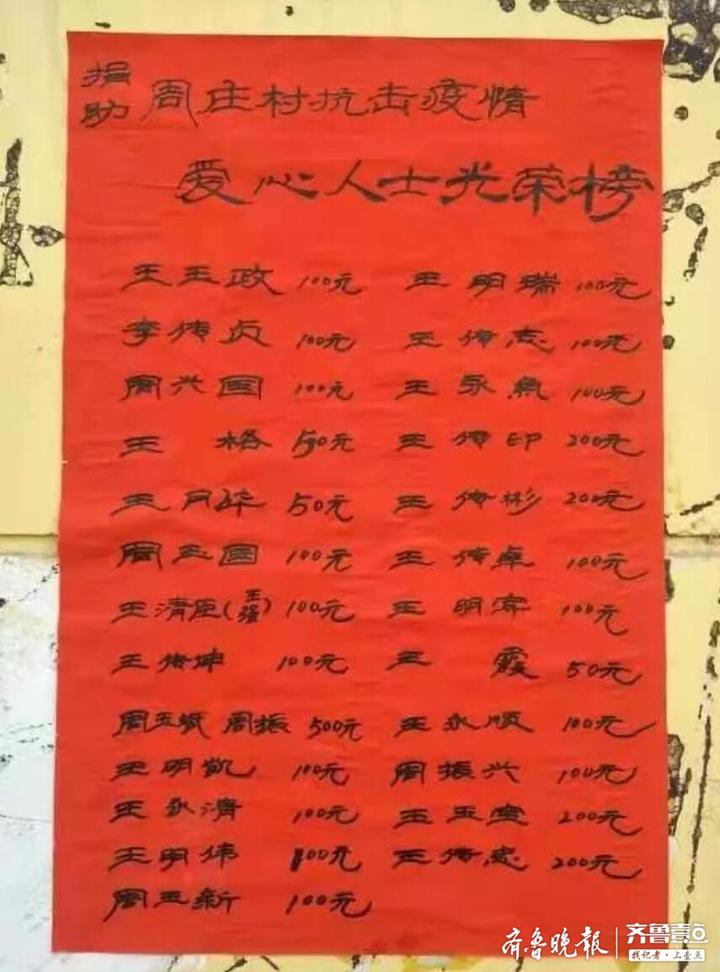 捐助 周庄村抗击疫情
爱心人士光荣榜
王玉政 100元 王明瑞 100元
李传贞 100元 王传志 100元
周兴国 100元 王永 100元
王格 50元 王传印 200元
王月华 50元 王传彬 200元
周玉国 100元 王传卓 100元
王清臣(王强) 100元 王明宾 100元
王传坤 100元 王霞 50元
周玉斌 周振 500元 王永顺 100元
王明凯 100元 周振兴 100元
王永清 100元 王玉宝 200元
王明伟 100元 王传忠 200元
周玉新 100元
齐鲁晚报 齐鲁壹点
找记者·上壹点